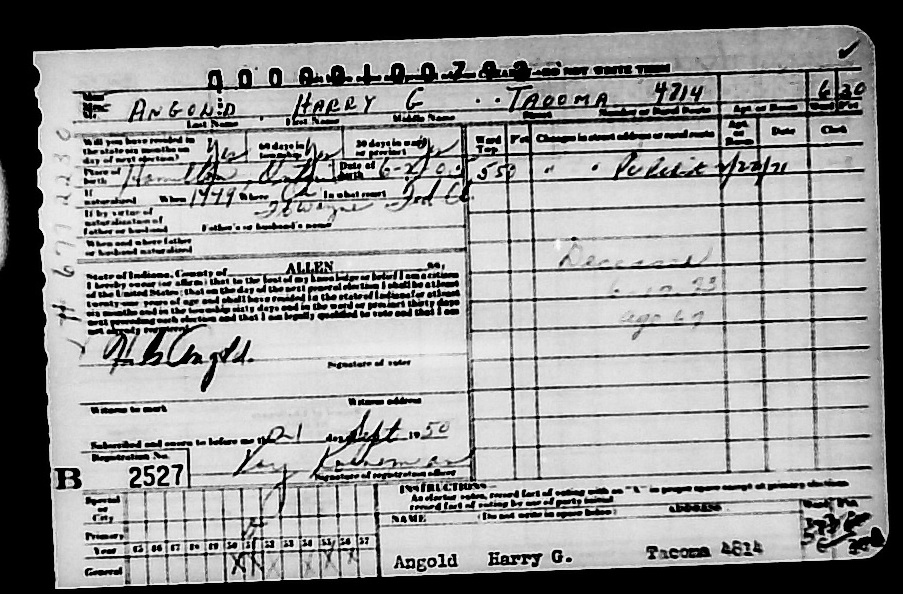 0000100702 DO NOT WRITE THIS
ANGOLD HARRY G TACOMA 4714 6 20
Last Name First Name Middle Name Street Number or Rural Route Apt. or Room Ward Pct
Will you have resided in the state six months on day of next election? Yes 60 days in township Yes 30 days in ward or precinct Yes Ward Twp. Pct Changes in street address or rural route Apt. or Room Date Clerk
Place of birth Hamilton Date of birth 6-2 550 " "
If naturalized When Where In what court Fed Ct.
Ft Wayne
If by virtue of naturalization of father or husband Father's or husband's name
When and where father or husband naturalized
Deceased
State of Indiana, County of ALLEN ss:
I hereby swear (or affirm) that to the best of my knowledge or belief I am a citizen
of the United States; that on the day of the next general election I shall be at least
twenty-one years of age and shall have resided in the state of Indiana for at least
six months and in the township sixty days and in the ward or precinct thirty days
next preceding such election and that I am legally qualified to vote and that I am
not already registered.
age 67
H G Angold.
Signature of voter
Witness to mark Witness address
Subscribed and sworn to before me this 21 day Sept 1950
Registration No.
Signature of registration officer
B 2527
# 6772230
INSTRUCTIONS
As elector votes, record fact of voting with an "X" in proper space except at primary elections
record fact of voting by use of party initial
Special or City
NAME (Do not write in space below) ADDRESS Ward Pct.
Primary
Year 45 46 47 48 49 50 51 52 53 54 55 56 57
General X X X X X X
Angold Harry G. Tacoma 4814